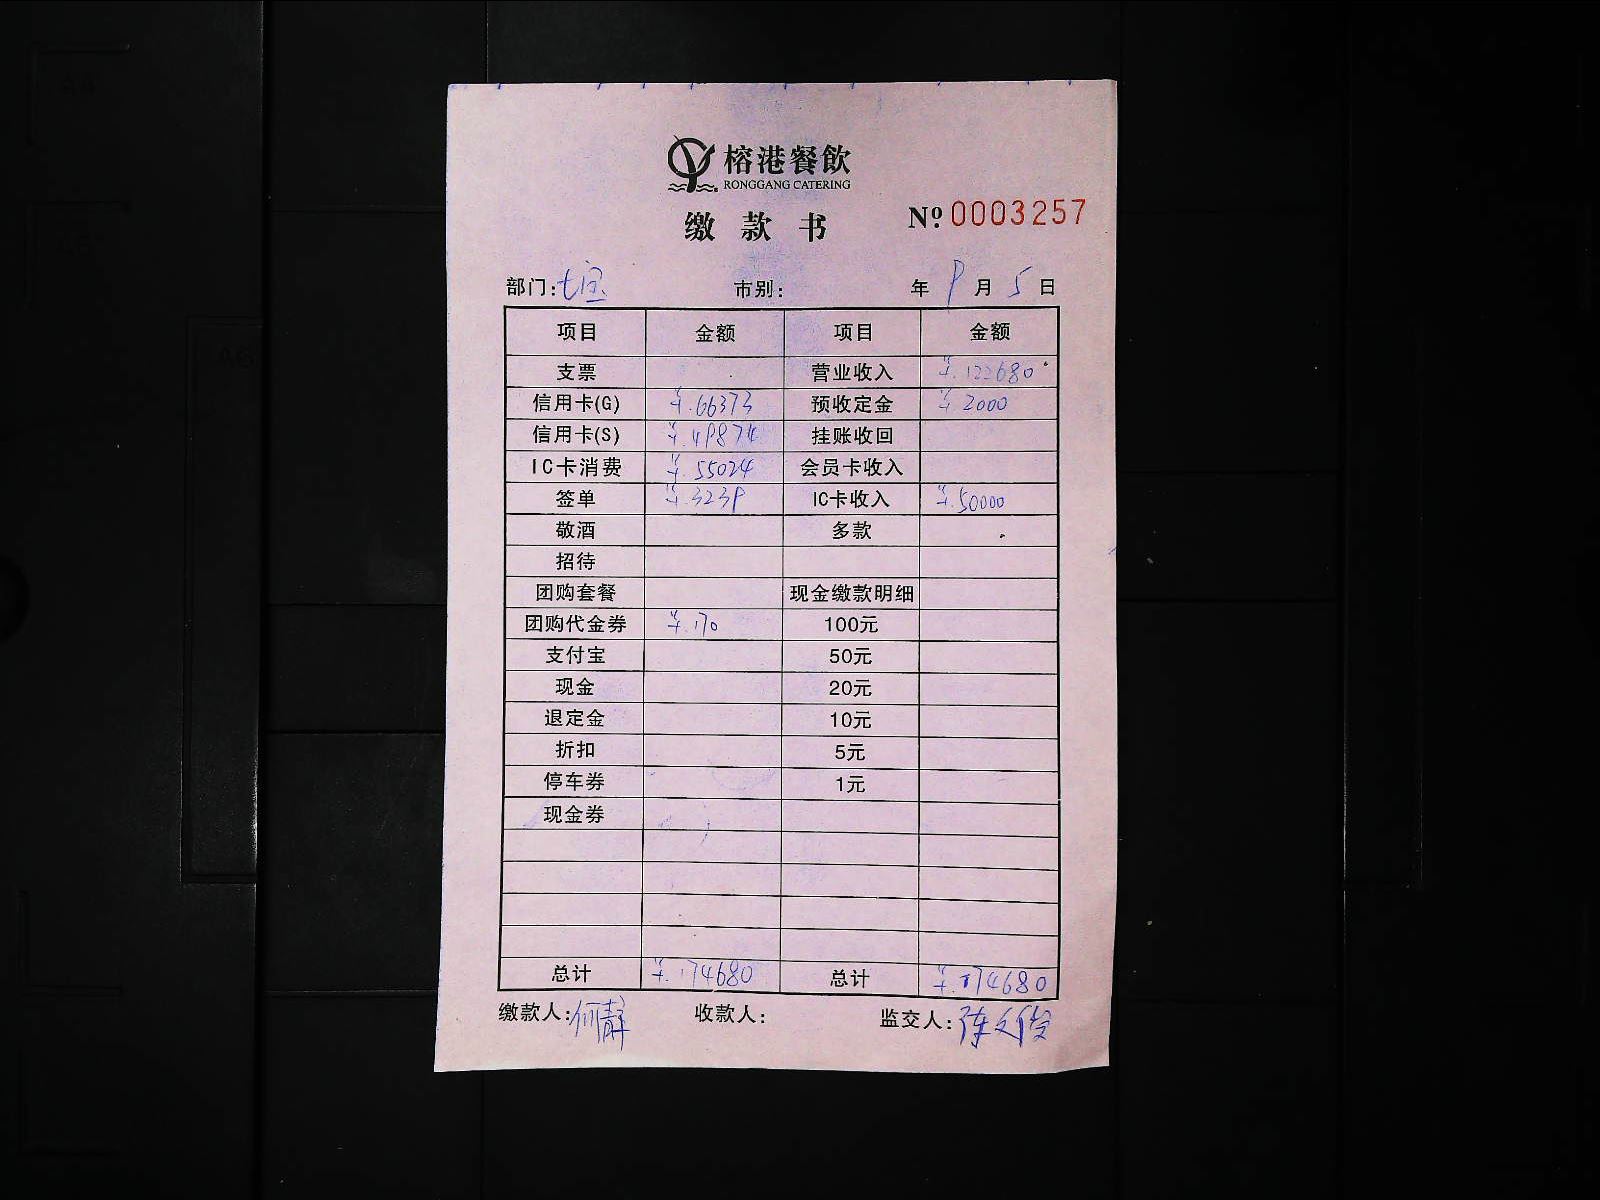 榕港餐飲
RONGGANG CATERING
缴款书 Nº 0003257
部门:七宝 市别: 年 9 月 5 日
项目 金额 项目 金额
支票 营业收入 ¥.122680
信用卡(G) ¥.66373 预收定金 ¥.2000
信用卡(S) ¥.49874 挂账收回
IC卡消费 ¥.55024 会员卡收入
签单 ¥.3239 IC卡收入 ¥.50000
敬酒 多款
招待
团购套餐 现金缴款明细
团购代金券 ¥.170 100元
支付宝 50元
现金 20元
退定金 10元
折扣 5元
停车券 1元
现金券
总计 ¥.174680 总计 ¥.174680
缴款人:何静 收款人: 监交人:陈文俊